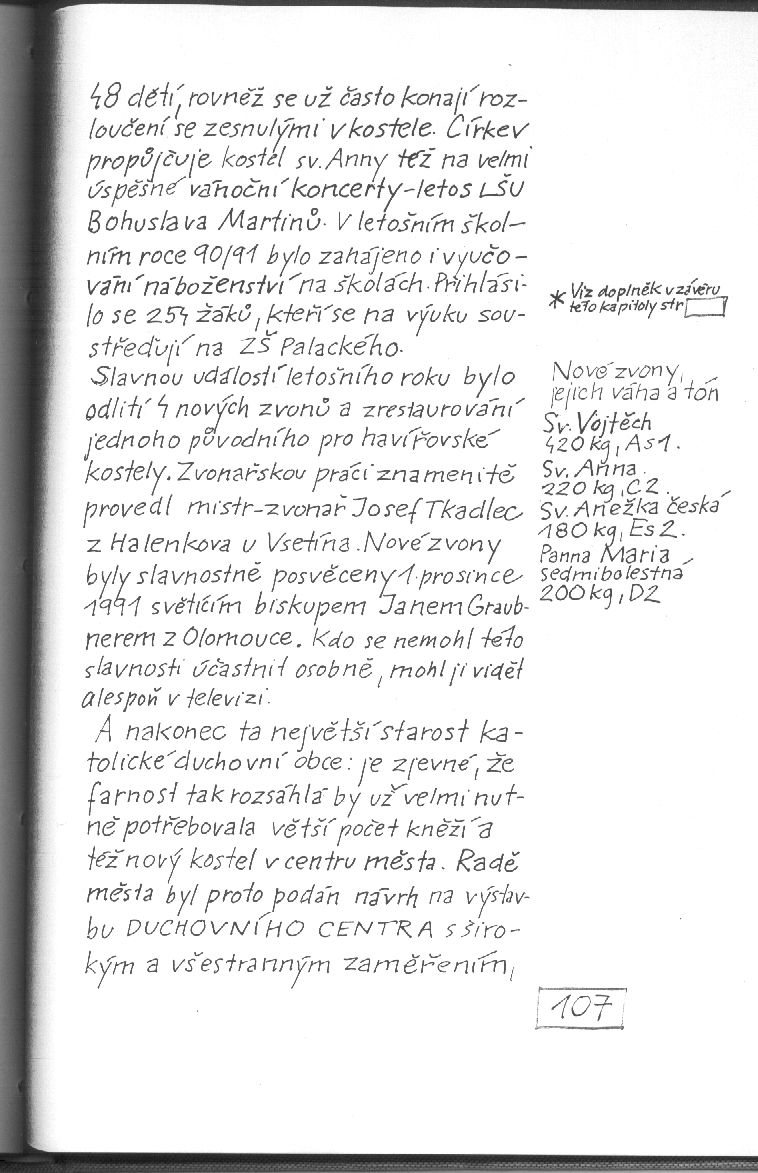 48 dětí, rovněž se už často konají roz-
loučení se zesnulými v kostele. Církev
propůjčuje kostel sv. Anny též na velmi
úspěšné vánoční koncerty - letos LŠU
Bohuslava Martinů. V letošním škol-
ním roce 90/91 bylo zahájeno i vyučo-
vání náboženství na školách. Přihlási-
lo se 254 žáků, kteří se na výuku sou-
středují na ZŠ Palackého.
Slavnou událostí letošního roku bylo
odlití 4 nových zvonů a zrestaurování
jednoho původního pro havířovské
kostely. Zvonařskou práci znamenitě
provedl mistr-zvonař Josef Tkadlec
z Halenkova u Vsetína. Nové zvony
byly slavnostně posvěceny 1. prosince
1991 světícím biskupem Janem Graub-
nerem z Olomouce. Kdo se nemohl této
slavnosti účastnit osobně, mohl ji vidět
alespoň v televizi.
A nakonec ta největší starost ka-
tolické duchovní obce: je zjevné, že
farnost tak rozsáhlá by už velmi nut-
ně potřebovala větší počet kněží a
též nový kostel v centru města. Radě
města byl proto podán návrh na výstav-
bu DUCHOVNÍHO CENTRA s širo-
kým a všestranným zaměřením,
* Viz doplněk v závěru
této kapitoly str
Nové zvony,
jejich váha a tón
Sv. Vojtěch
420 kg, As 1.
Sv. Anna.
220 kg, C2.
Sv. Anežka česká
180 kg, Es 2.
Panna Maria
sedmibolestná
200 kg, D2
107